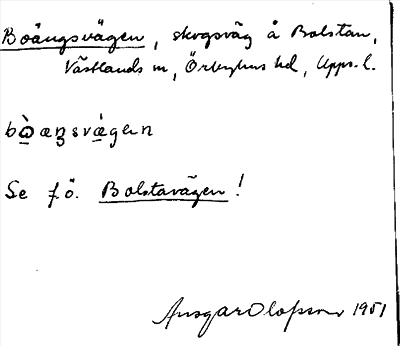 Boängsvägen, skogsväg å Bolstan,
Västlands sn, Örbyhus hd, Upps. l.
bò̱aŋsvä̀gen
Se f.ö. Bolstavägen!
Ansgar Olofsson 1951